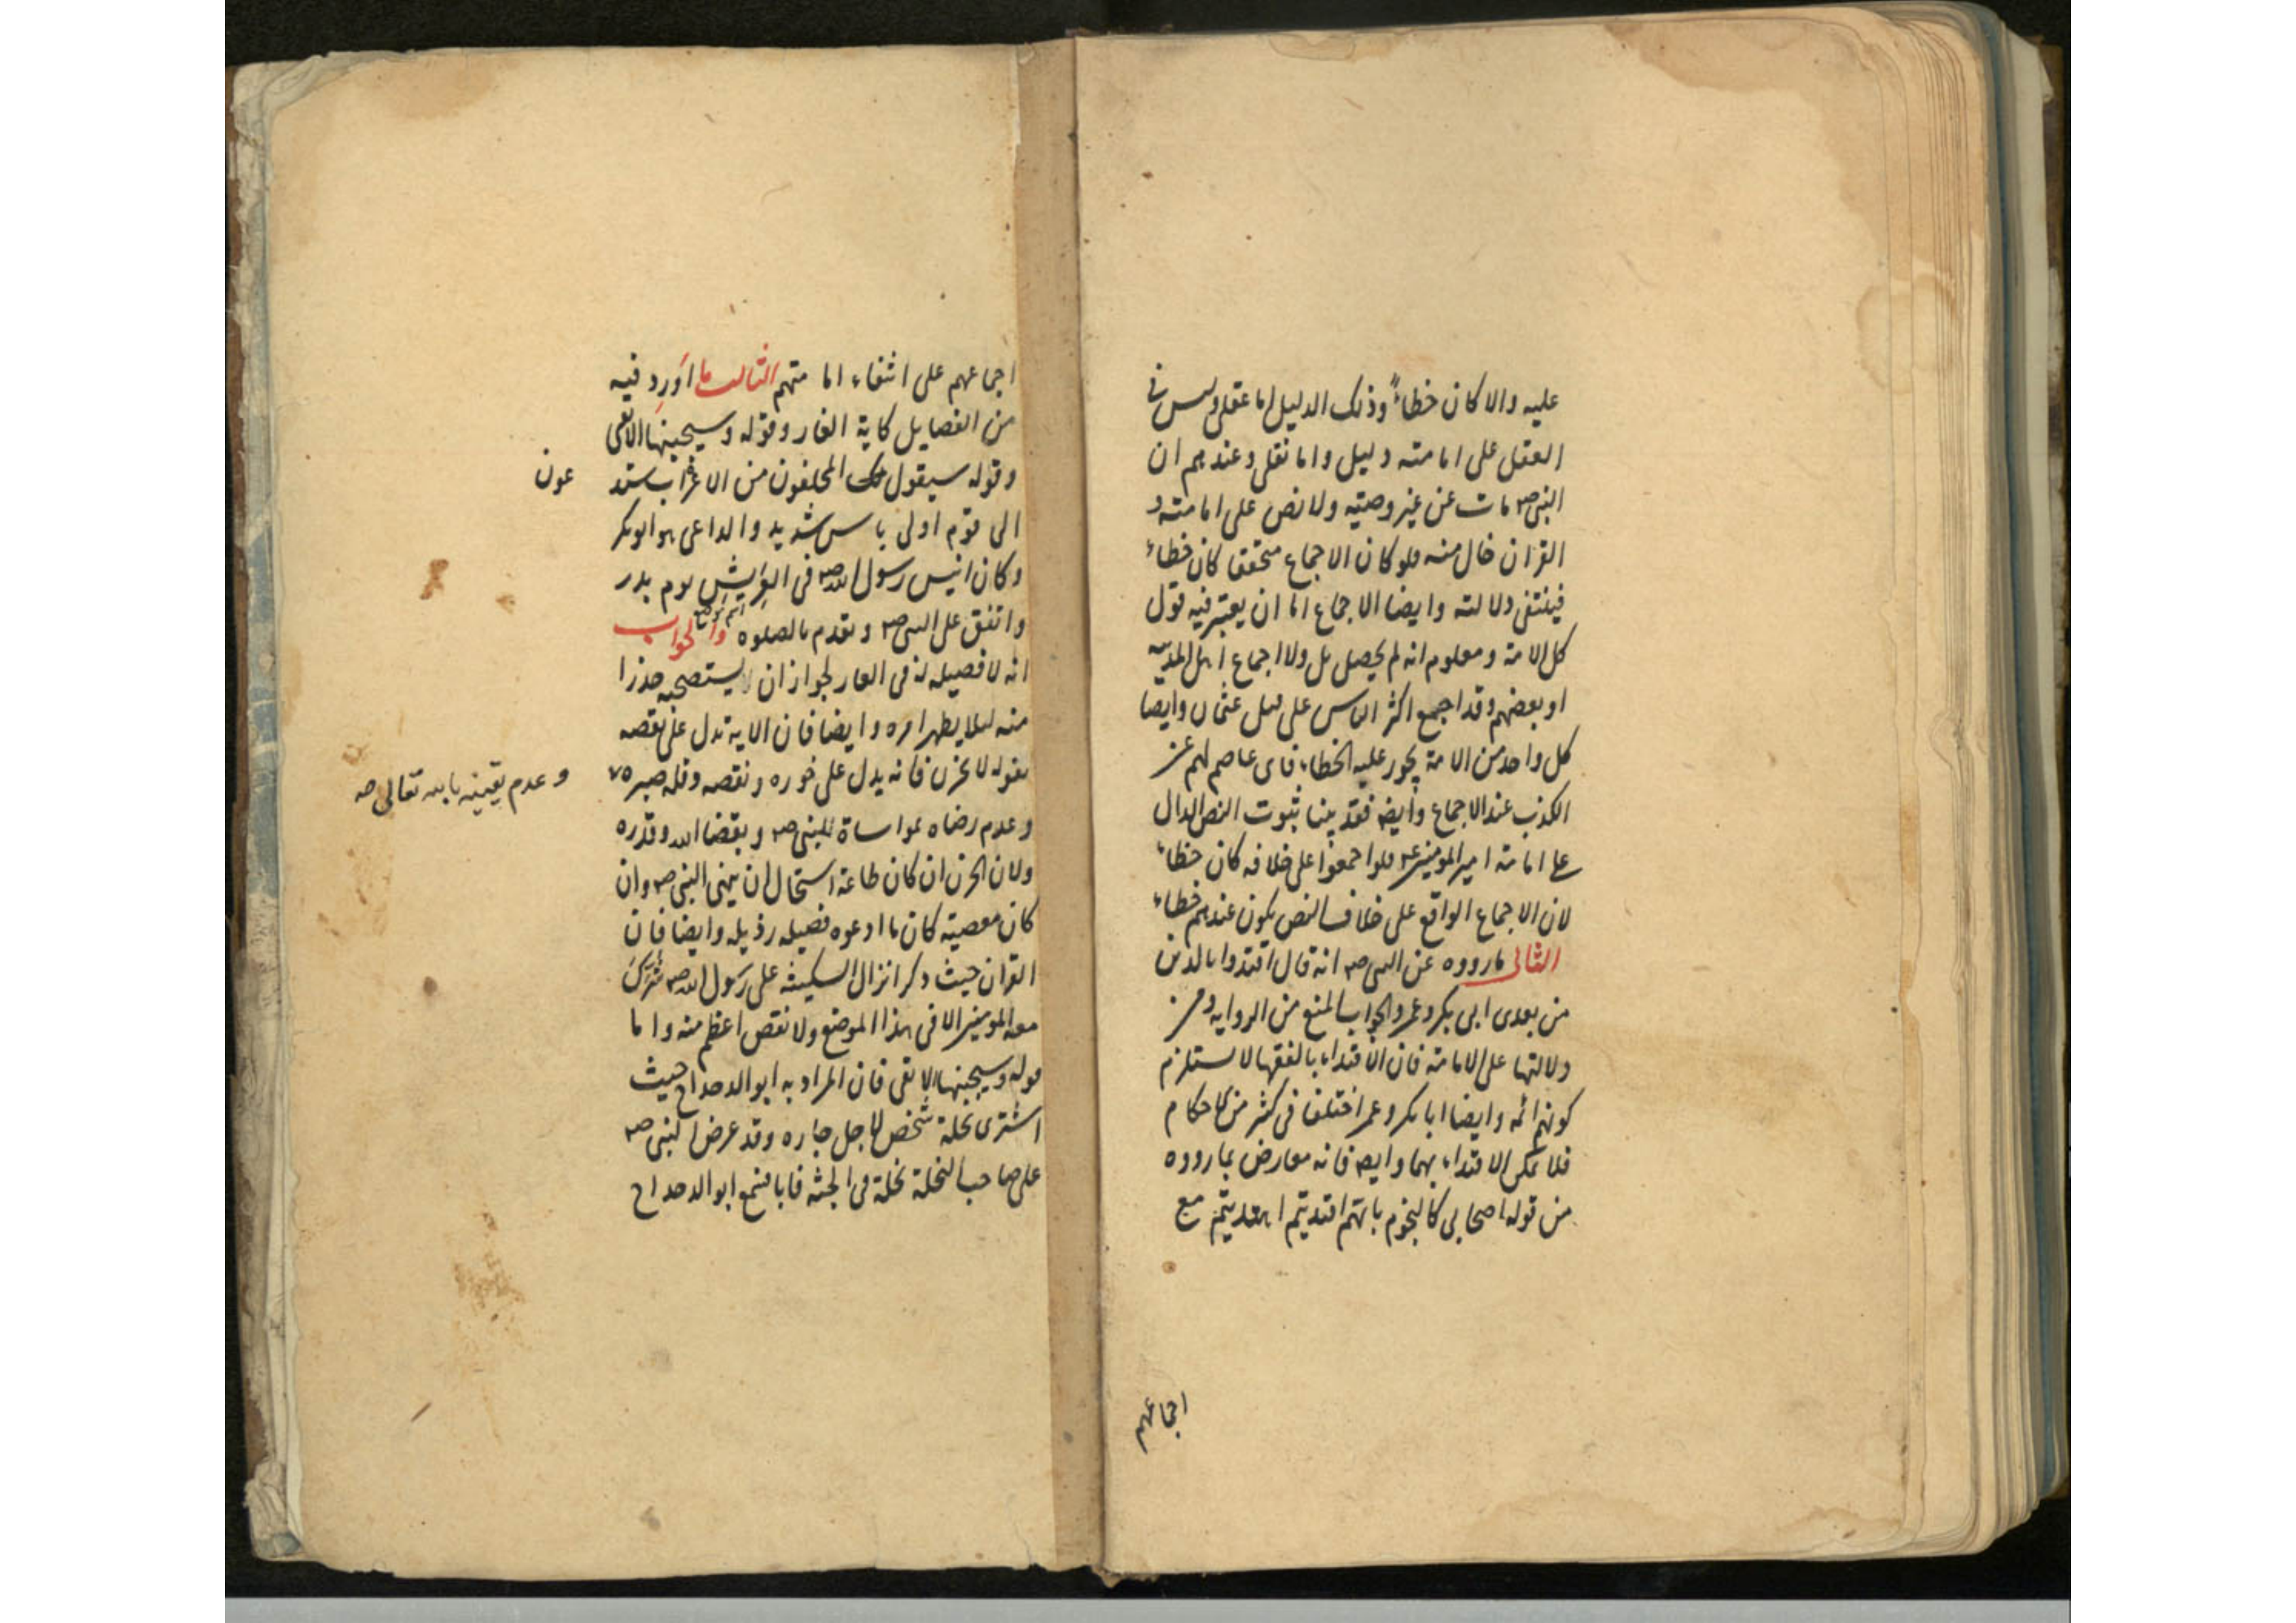 عليه والا كان خطاءً وذلك الدليل اما عقلى وليس فى
العقل على امامته دليل واما نقلى وعندهم ان
النبى ص مات عن غير وصية ولا نص على امامته و
القران خال منه فلو كان الاجماع متحققا كان خطاء
فينتفى دلالته وايضا الاجماع اما ان يعتبر فيه قول
كل الامة ومعلوم انه لم يحصل بل ولا اجماع اهل المدينه
او بعضهم وقد اجمع اكثر الناس على قتل عثمان وايضا
كل واحد من الامة يجوز عليه الخطاء فاى عاصم لهم عن
الكذب عند الاجماع وايضه فقد بينا ثبوت النص الدال
على امامة امير المومنين ع فلو اجمعوا على خلافه كان خطاء
لان الاجماع الواقع على خلاف النص يكون عندهم خطاء
الثانى ما رووه عن النبى ص انه قال اقتدوا بالذين
من بعدى ابى بكر وعمر والجواب المنع من الروايه ومن
دلالتها على الامامة فان الاقتداء بالفقها لا يستلزم
كونهم ائمه وايضا ابا بكر وعمر اختلفا فى كثير من الاحكام
فلا يمكن الاقتداء بهما وايضه فانه معارض بما رووه
من قوله اصحابى كالنجوم بايهم اقتديتم اهتديتم مع
اجماعهم
اجماعهم على انتفاء امامتهم الثالث ما اورد فيه
من الفضايل كاية الغار وقوله وسيجنبها الاتقى
وقوله سيقول لك المخلفون من الاعراب ستد
عون
الى قوم اولى باس شديد والداعى هو ابو بكر
وكان انيس رسول الله ص فى العريش يوم بدر
وانفق على النبى ص وتقدم بالصلوه والجواب
انه لا فضيله له فى الغار لجواز ان يستصحبه حذرا
منه لئلا يظهر امره وايضا فان الايه تدل على نقصه
بقوله لا تحزن فانه يدل على خوره ونقصه وقله صبره
وعدم يقينه بالله تعالى صه
وعدم رضاه بمواساة للنبى ص وبقضا الله وقدره
ولان الحزن ان كان طاعة استحال ان ينهى النبى ص وان
كان معصية كان ما ادعوه فضيله رذيله وايضا فان
القران حيث ذكر انزال السكينه على رسول الله ص شرك
معه المومنين الا فى هذا الموضع ولا نقص اعظم منه واما
قوله وسيجنبها الاتقى فان المراد به ابو الدحداح حيث
اشترى نخلة شخص لاجل جاره وقد عرض النبى ص
على صاحب النخلة نخلة فى الجنه فابا فسمع ابو الدحداح